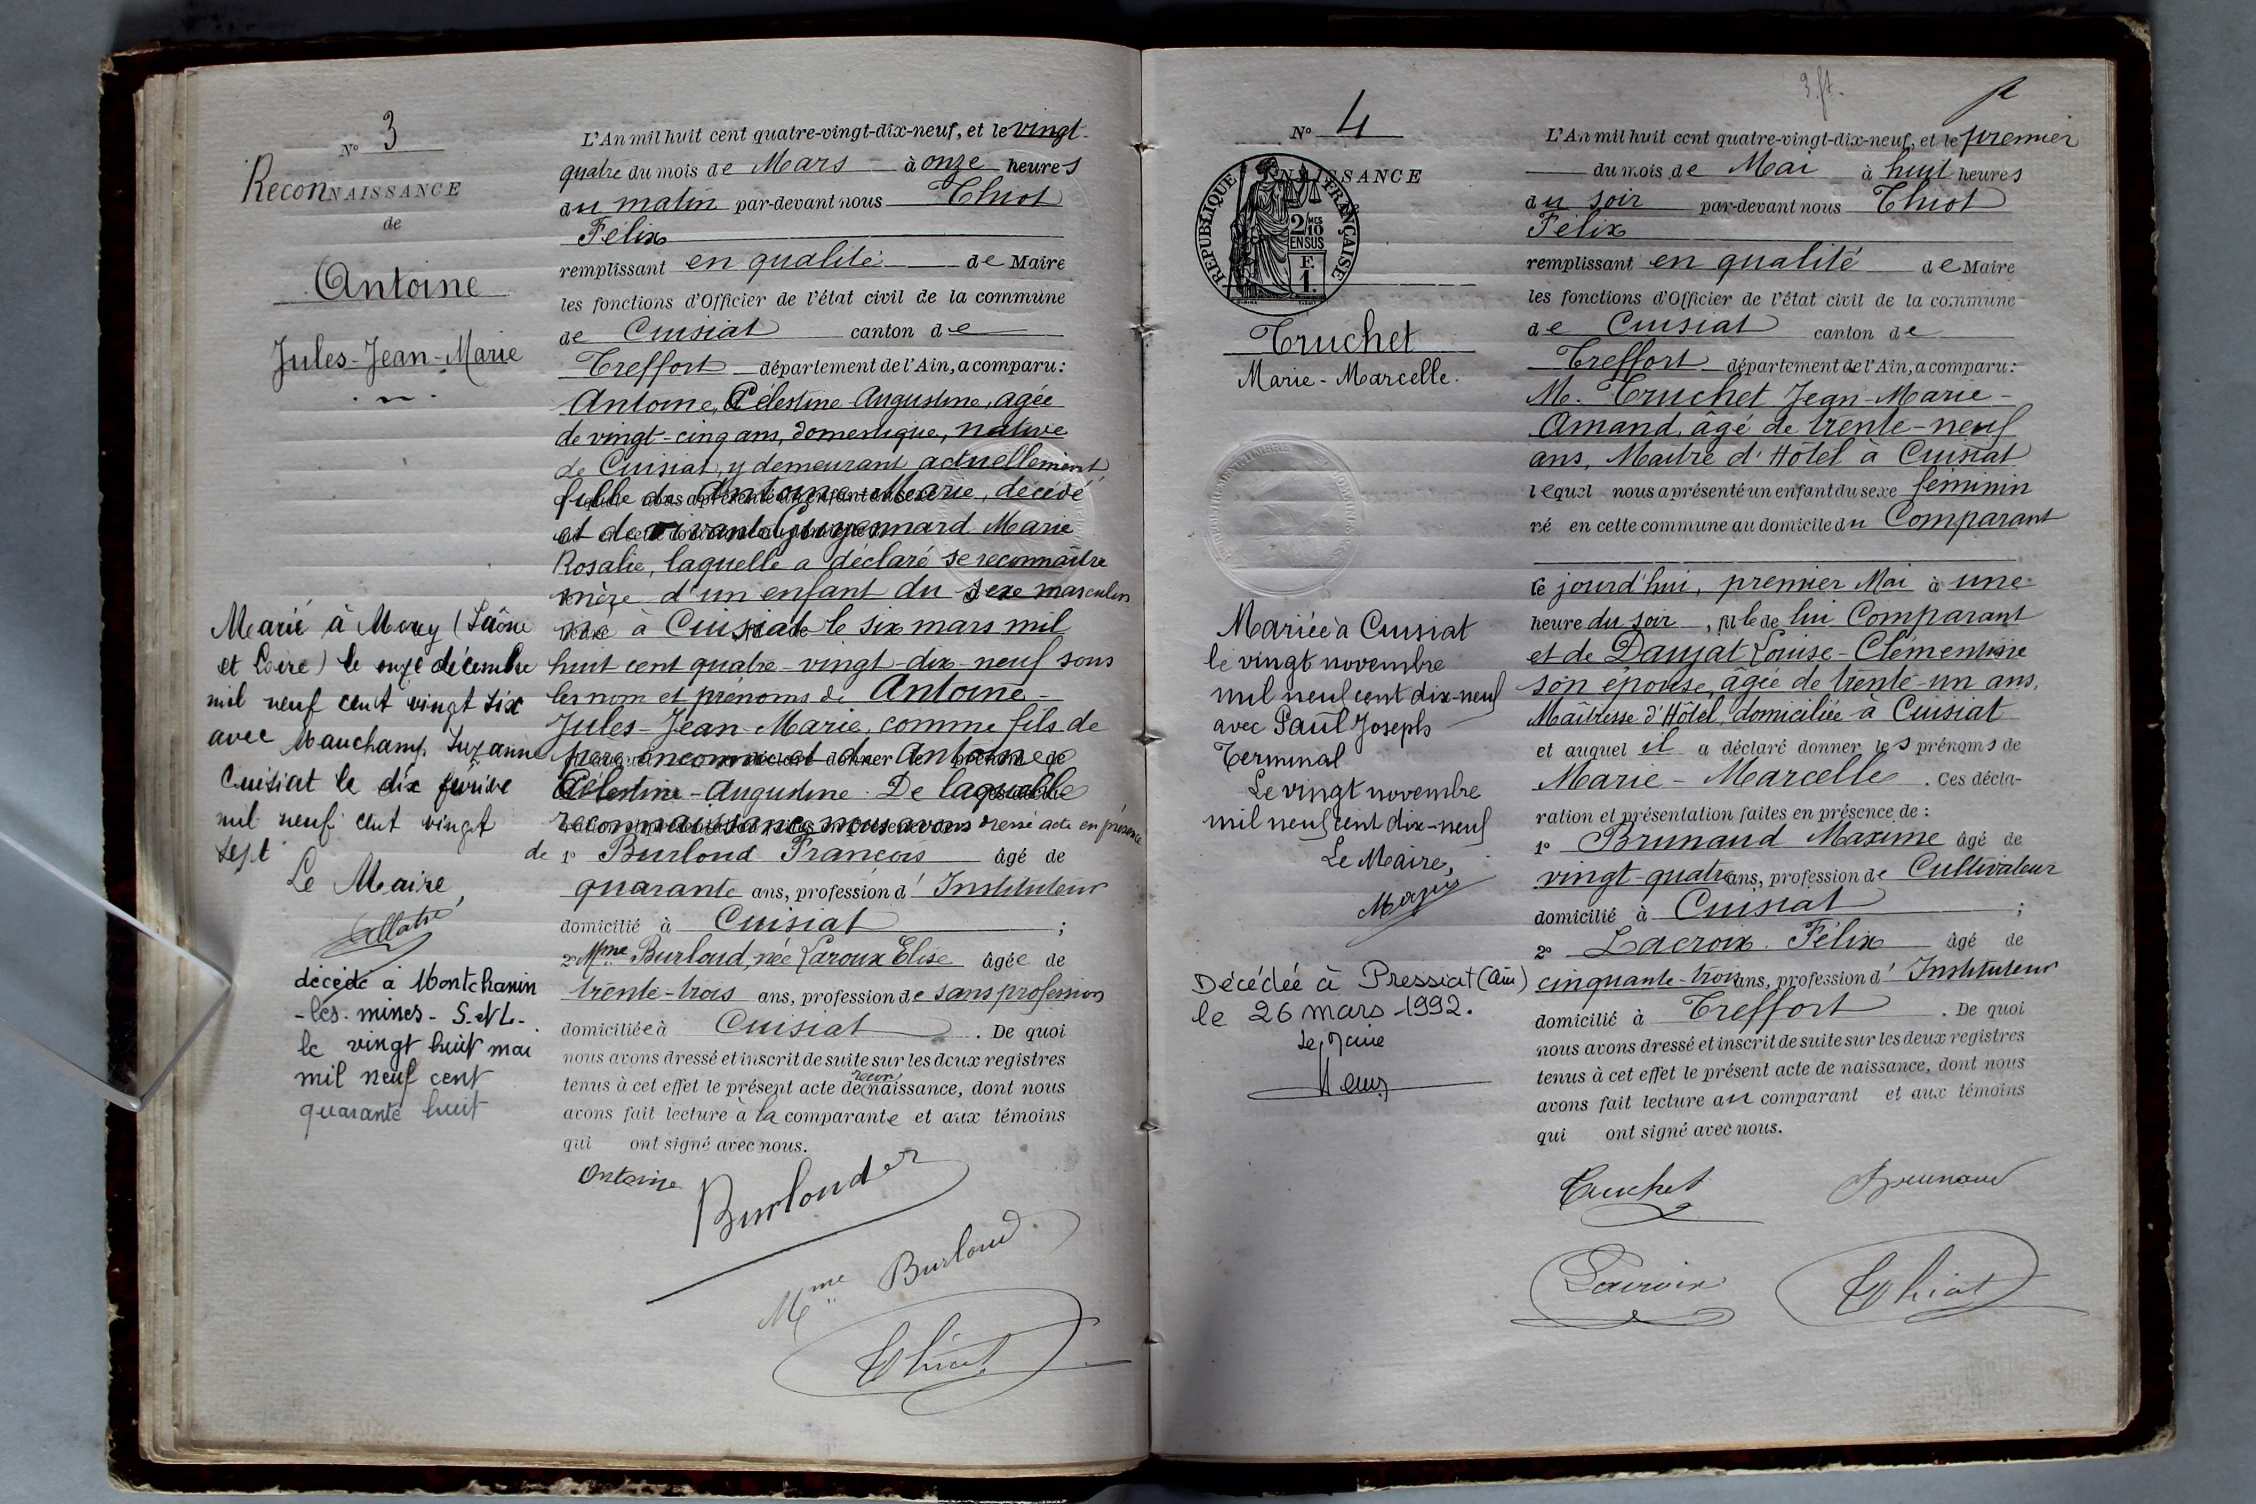 N° 3
ReconNAISSANCE
de
Antoine
Jules-Jean-Marie
Marié à Morey (Saône
et Loire) le onze décembre
mil neuf cent vingt six
avec Mauchamp Suzanne
Cuisiat le dix
mil neuf cent vingt
sept
Le Maire,
décédé à Montchanin
-les-mines- S.-et-L-.
le vingt huit mai
mil neuf cent
quarante huit
L'An mil huit cent quatre-vingt-dix-neuf, et le vingt-
quatre du mois de Mars à onze heures
du matin par-devant nous Thiot
Félix
remplissant en qualité de Maire
les fonctions d'Officier de l'état civil de la commune
de Cuisiat canton de
Treffort département de l'Ain, a comparu:
Antoine, Célestine-Augustine, agée
de vingt-cinq ans, domestique, native
de Cuisiat, y demeurant actuellement
fille de Antoine Marie, décédé
et de vivante Guyennard Marie
Rosalie, laquelle a déclaré se reconnaître
mère d'un enfant du sexe masculin
né à Cuisiat le six mars mil
huit cent quatre-vingt-dix-neuf sous
les nom et prénoms de Antoine-
Jules-Jean-Marie, comme fils de
père inconnu et de Antoine
Célestine-Augustine. De laquelle
reconnaissance nous avons dressé acte en présence
de 1° Burloud François âgé de
quarante ans, profession d'Instituteur
domicilié à Cuisiat ;
2° Mme Burloud, née Laroux Elise âgée de
trente-trois ans, profession de sans profession
domiciliée à Cuisiat . De quoi
nous avons dressé et inscrit de suite sur les deux registres
tenus à cet effet le présent acte de reconnaissance, dont nous
avons fait lecture à la comparante et aux témoins
qui ont signé avec nous.
Antoine
Burloud
Mme Burloud
Thiot
N° 4
NAISSANCE
RÉPUBLIQUE FRANÇAISE
2/10
EN SUS
F.
1.
Truchet
Marie-Marcelle.
Mariée à Cuisiat
le vingt novembre
mil neuf cent dix-neuf
avec Paul Joseph
Terminal
Le vingt novembre
mil neuf cent dix-neuf
Le Maire,
Décédée à Pressiat (Ain)
le 26 mars 1992.
Le Maire
L'An mil huit cent quatre-vingt-dix-neuf, et le premier
du mois de Mai à huit heures
du soir par-devant nous Thiot
Félix
remplissant en qualité de Maire
les fonctions d'Officier de l'état civil de la commune
de Cuisiat canton de
Treffort département de l'Ain, a comparu:
M. Truchet Jean-Marie-
Amand, âgé de trente-neuf
ans, Maître d'Hôtel à Cuisiat
lequel nous a présenté un enfant du sexe féminin
né en cette commune au domicile du Comparant
ce jourd'hui, premier Mai à une
heure du soir, fille de lui Comparant
et de Daujat Louise-Clémentine
son épouse, âgée de trente-un ans,
Maîtresse d'Hôtel, domiciliée à Cuisiat
et auquel il a déclaré donner les prénoms de
Marie-Marcelle. Ces décla-
ration et présentation faites en présence de :
1° Brunaud Maxime âgé de
vingt-quatre ans, profession de Cultivateur
domicilié à Cuisiat ;
2° Lacroix Félix âgé de
cinquante-trois ans, profession d'Instituteur
domicilié à Treffort . De quoi
nous avons dressé et inscrit de suite sur les deux registres
tenus à cet effet le présent acte de naissance, dont nous
avons fait lecture au comparant et aux témoins
qui ont signé avec nous.
Truchet Brunaud
Lacroix Thiot